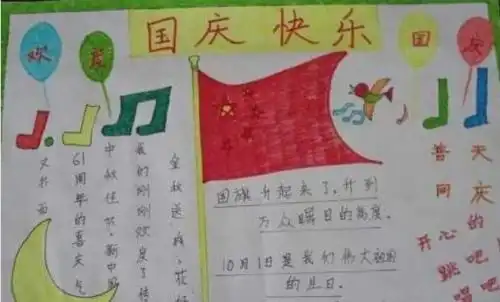 国庆快乐
欢度国庆
金秋送爽,花好
我们刚刚欢度了传
中秋佳节.新中国
61周年的喜庆气
又扑面
国旗升起来了,升到
万众瞩目的高度。
10月1日是我们伟大祖国
的生日。
普天
同庆
开心的
跳吧
唱吧